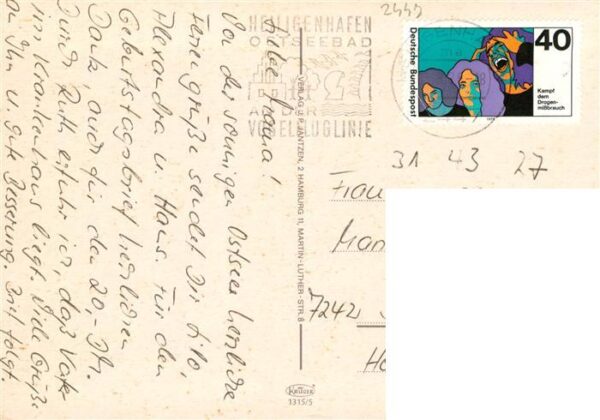 2449
HEILIGENHAFEN
OSTSEEBAD
AN DER
VOGELFLUGLINIE
Deutsche Bundespost
40
Kampf
dem
Drogen-
mißbrauch
31 43 27
Frau
7242
VERLAG J. F. JANTZEN, 2 HAMBURG 11, MARTIN-LUTHER-STR. 8
KRÜGER
1315/5
Liebe
Von der sonnigen Ostsee herzliche
Feriengrüße sendet Dir Filo,
Alexandra u. Hans. Für den
Geburtstagsbrief herzlichen
Dank, auch für den 20,- DM.
Durch Ruth erfuhr ich, daß Vater
im Krankenhaus liegt. Viele Grüße
an Ihn u. gute Besserung. Brief folgt.